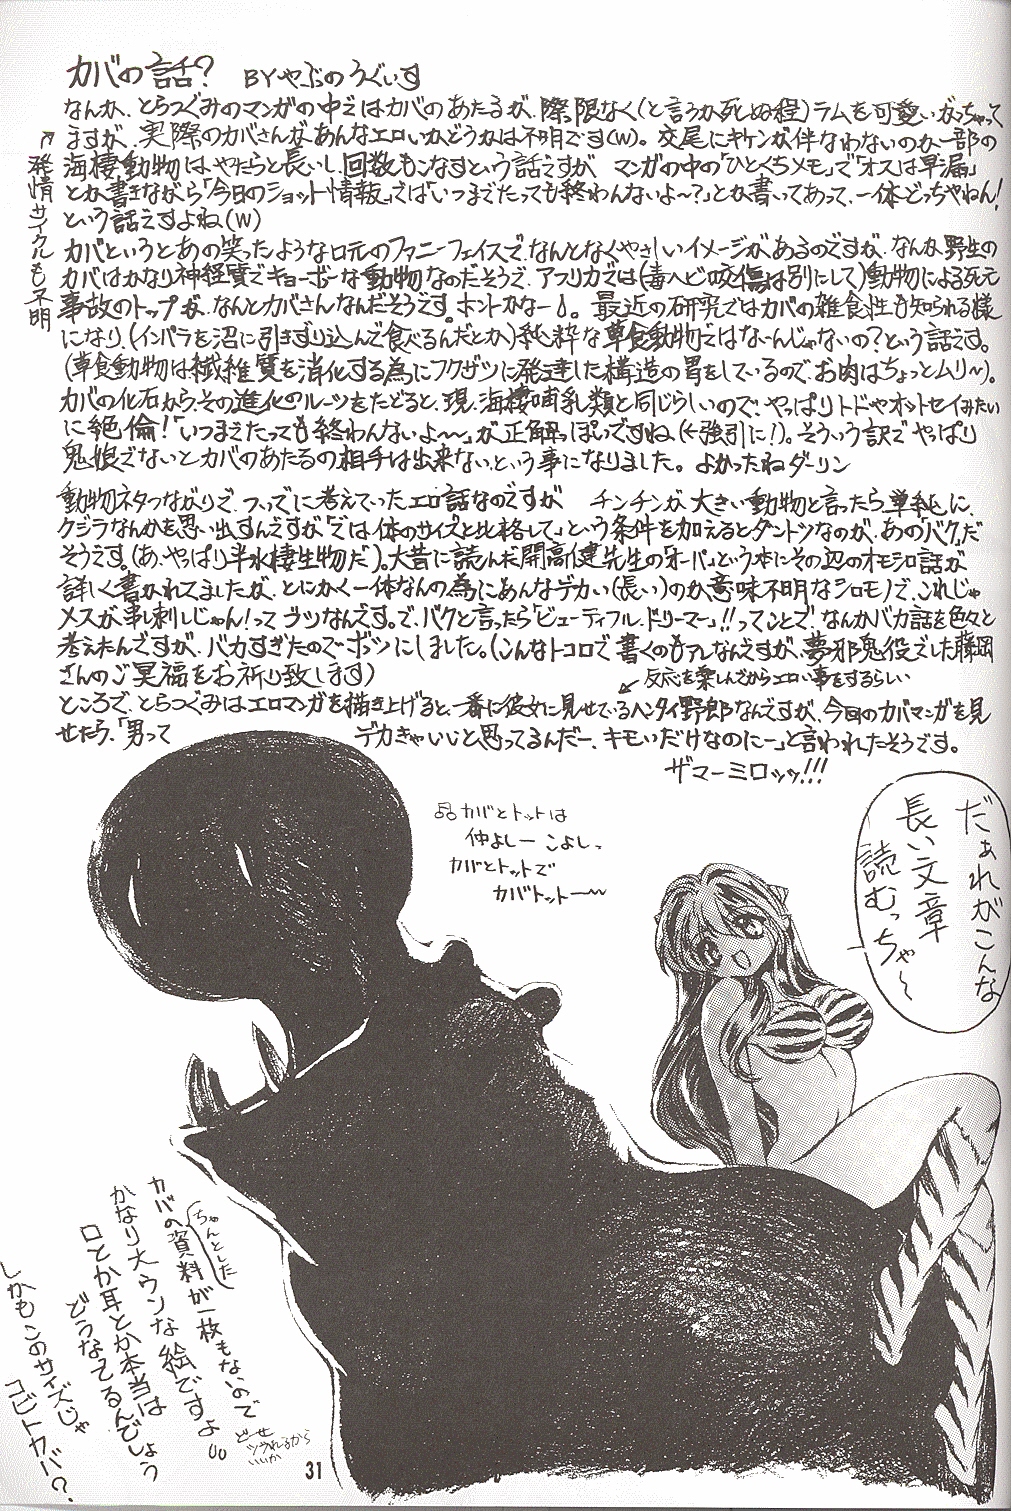 カバの話? BYやぶのうぐいす
なんか、とらつぐみのマンガの中ではカバのあたるが、際限なく(と言うか死ぬ程)ラムを可愛いがっちゃって
ますが、実際のカバさんが、あんなエロいかどうかは不明です(w)。交尾にキケンが伴なわないのか一部の
海棲動物は、やたらと長いし、回数もこなすという話ですが マンガの中の「ひとくちメモ」で「オスは早漏」
とか書きながら「今日のショット情報」では「いつまでたっても終わんないよ〜?」とか書いてあって、一体どっちやねん!
という話ですよね(w)
↖発情サイクルも不明
カバというとあの笑ったような口元のファニーフェイスで、なんとなくやさしいイメージがあるのですが、なんか野生の
カバはかなり神経質でキョーボーな動物なのだそうで、アフリカでは(毒ヘビ咬傷は別にして)動物による死亡
事故のトップが、なんとカバさんなんだそうです。ホントかなー。最近の研究ではカバの雑食性も知られる様
になり、(インパラを沼に引きずり込んで食べるんだとか)純粋な草食動物ではないんじゃないの?という話です。
(草食動物は繊維質を消化する為にフクザツに発達した構造の胃をしているので、お肉はちょっとムリ〜)。
カバの化石から、その進化のルーツをたどると、現・海棲哺乳類と同じらしいので、やっぱりトドやオットセイみたい
に絶倫!「いつまでたっても終わんないよ〜〜」が正解っぽいですね(←強引に!)。そういう訳でやっぱり
鬼娘でないとカバのあたるの相手は出来ない、という事になりました。よかったねダーリン
動物ネタつながりで、フッでに考えていったエロ話なのですが チンチンが大きい動物と言ったら単純に、
クジラなんかを思い出すんですが「では体のサイズと比格して」という条件を加えるとダントツなのが、あの「バク」だ
そうです。(あ、やっぱり半水棲生物だ)。大昔に読んだ開高健先生の「オーパ」という本にその辺のオモシロ話が
詳しく書かれてましたが、とにかく一体なんの為にあんなデカい(長い)のか意味不明なシロモノで、これじゃ
メスが串刺しじゃん!ってブツなんです。で、バクと言ったら「ビューティフル・ドリーマー」!!ってことで、なんかバカ話を色々と
考えたんですが、バカすぎたのでボツにしました。(こんなトコロで書くのもアレなんですが、夢邪鬼役でした藤岡
さんのご冥福をお祈り致します)
反応を楽しんでからエロい事をするらしい
ところで、とらつぐみはエロマンガを描き上げると、一番に彼女に見せているヘンタイ野郎なんですが、今回のカバマンガを見
せたら、「男って デカきゃいいと思ってるんだー、キモいだけなのにー」と言われたそうです。
ザマーミロッッ!!!
だぁれがこんな
長い文章
読むっちゃ〜
♫カバとトットは
仲よしー こよしー、
カバとトットで
カバトットー〜
(ちゃんとした)
カバの資料が一枚もないので
かなり大ウソな絵ですよ
口とか耳とか本当は
どうなってるんでしょう
しかもこのサイズじゃ
コビトカバ?
どーせ
ツブれるから
いいか
31